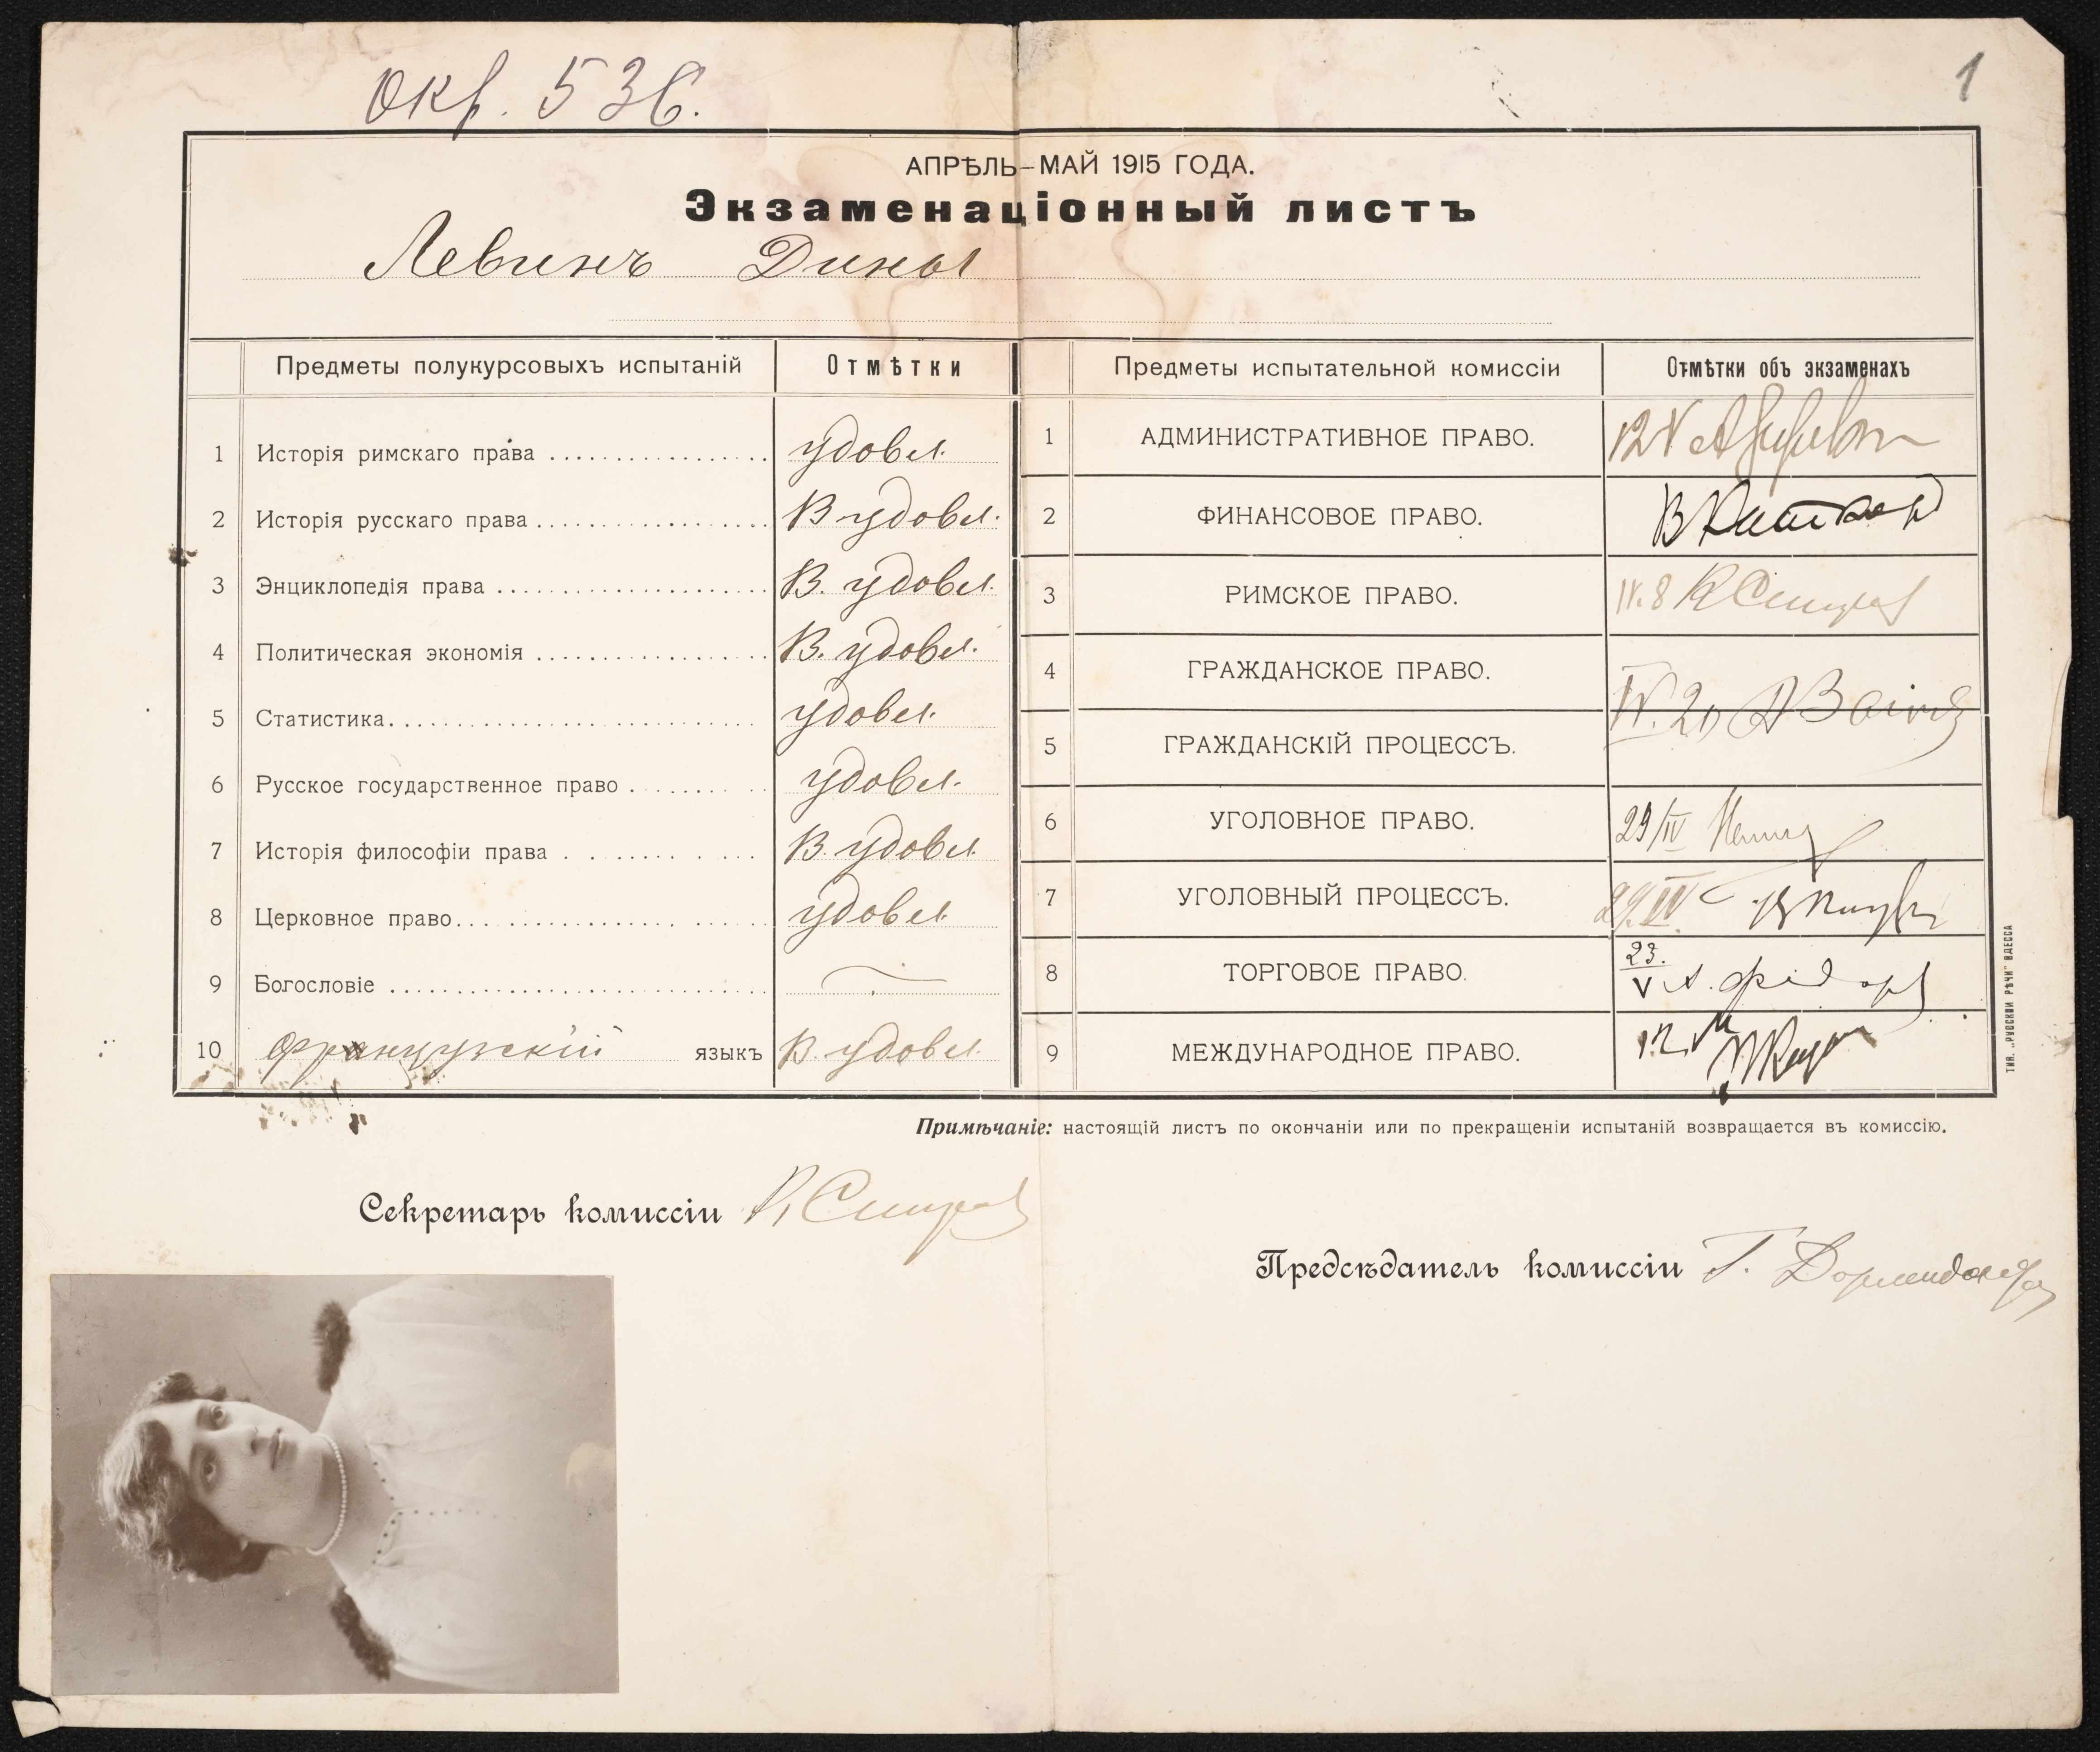 Окр. 536.
1
АПРѢЛЬ–МАЙ 1915 ГОДА.
Экзаменаціонный листъ
Левинъ Дины
Предметы полукурсовыхъ испытаній Отмѣтки
1 Исторія римскаго права удовл.
2 Исторія русскаго права В удовл.
3 Энциклопедія права В. удовл.
4 Политическая экономія В. удовл.
5 Статистика удовл.
6 Русское государственное право удовл.
7 Исторія философіи права В. удовл.
8 Церковное право удовл.
9 Богословіе —
10 Французскій языкъ В. удовл.
Предметы испытательной комиссіи Отмѣтки объ экзаменахъ
1 АДМИНИСТРАТИВНОЕ ПРАВО. 12 V
2 ФИНАНСОВОЕ ПРАВО.
3 РИМСКОЕ ПРАВО. IV. 8
4 ГРАЖДАНСКОЕ ПРАВО. IV. 20
5 ГРАЖДАНСКІЙ ПРОЦЕССЪ.
6 УГОЛОВНОЕ ПРАВО. 29/IV
7 УГОЛОВНЫЙ ПРОЦЕССЪ. 29/IV
8 ТОРГОВОЕ ПРАВО. 23. V А. Федоровъ
9 МЕЖДУНАРОДНОЕ ПРАВО.
Примѣчаніе: настоящій листъ по окончаніи или по прекращеніи испытаній возвращается въ комиссію.
Секретарь комиссіи
Предсѣдатель комиссіи Г.
ТИП. „РУССКОЙ РѢЧИ" ОДЕССА